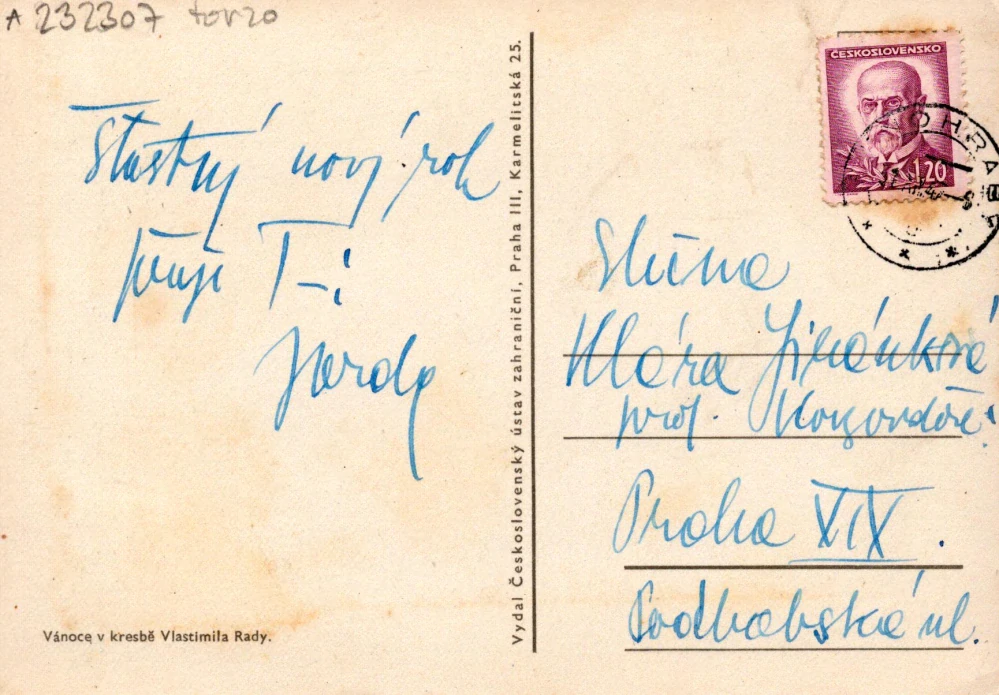 A 232307 torzo
Šťastný nový rok
přeji T-i
Jarda
Vánoce v kresbě Vlastimila Rady.
Vydal Československý ústav zahraniční, Praha III, Karmelitská 25.
ČESKOSLOVENSKO
1.20
Slečna
Klára Jiránková
prof. konzervatoře
Praha XIX.
Podbabská ul.